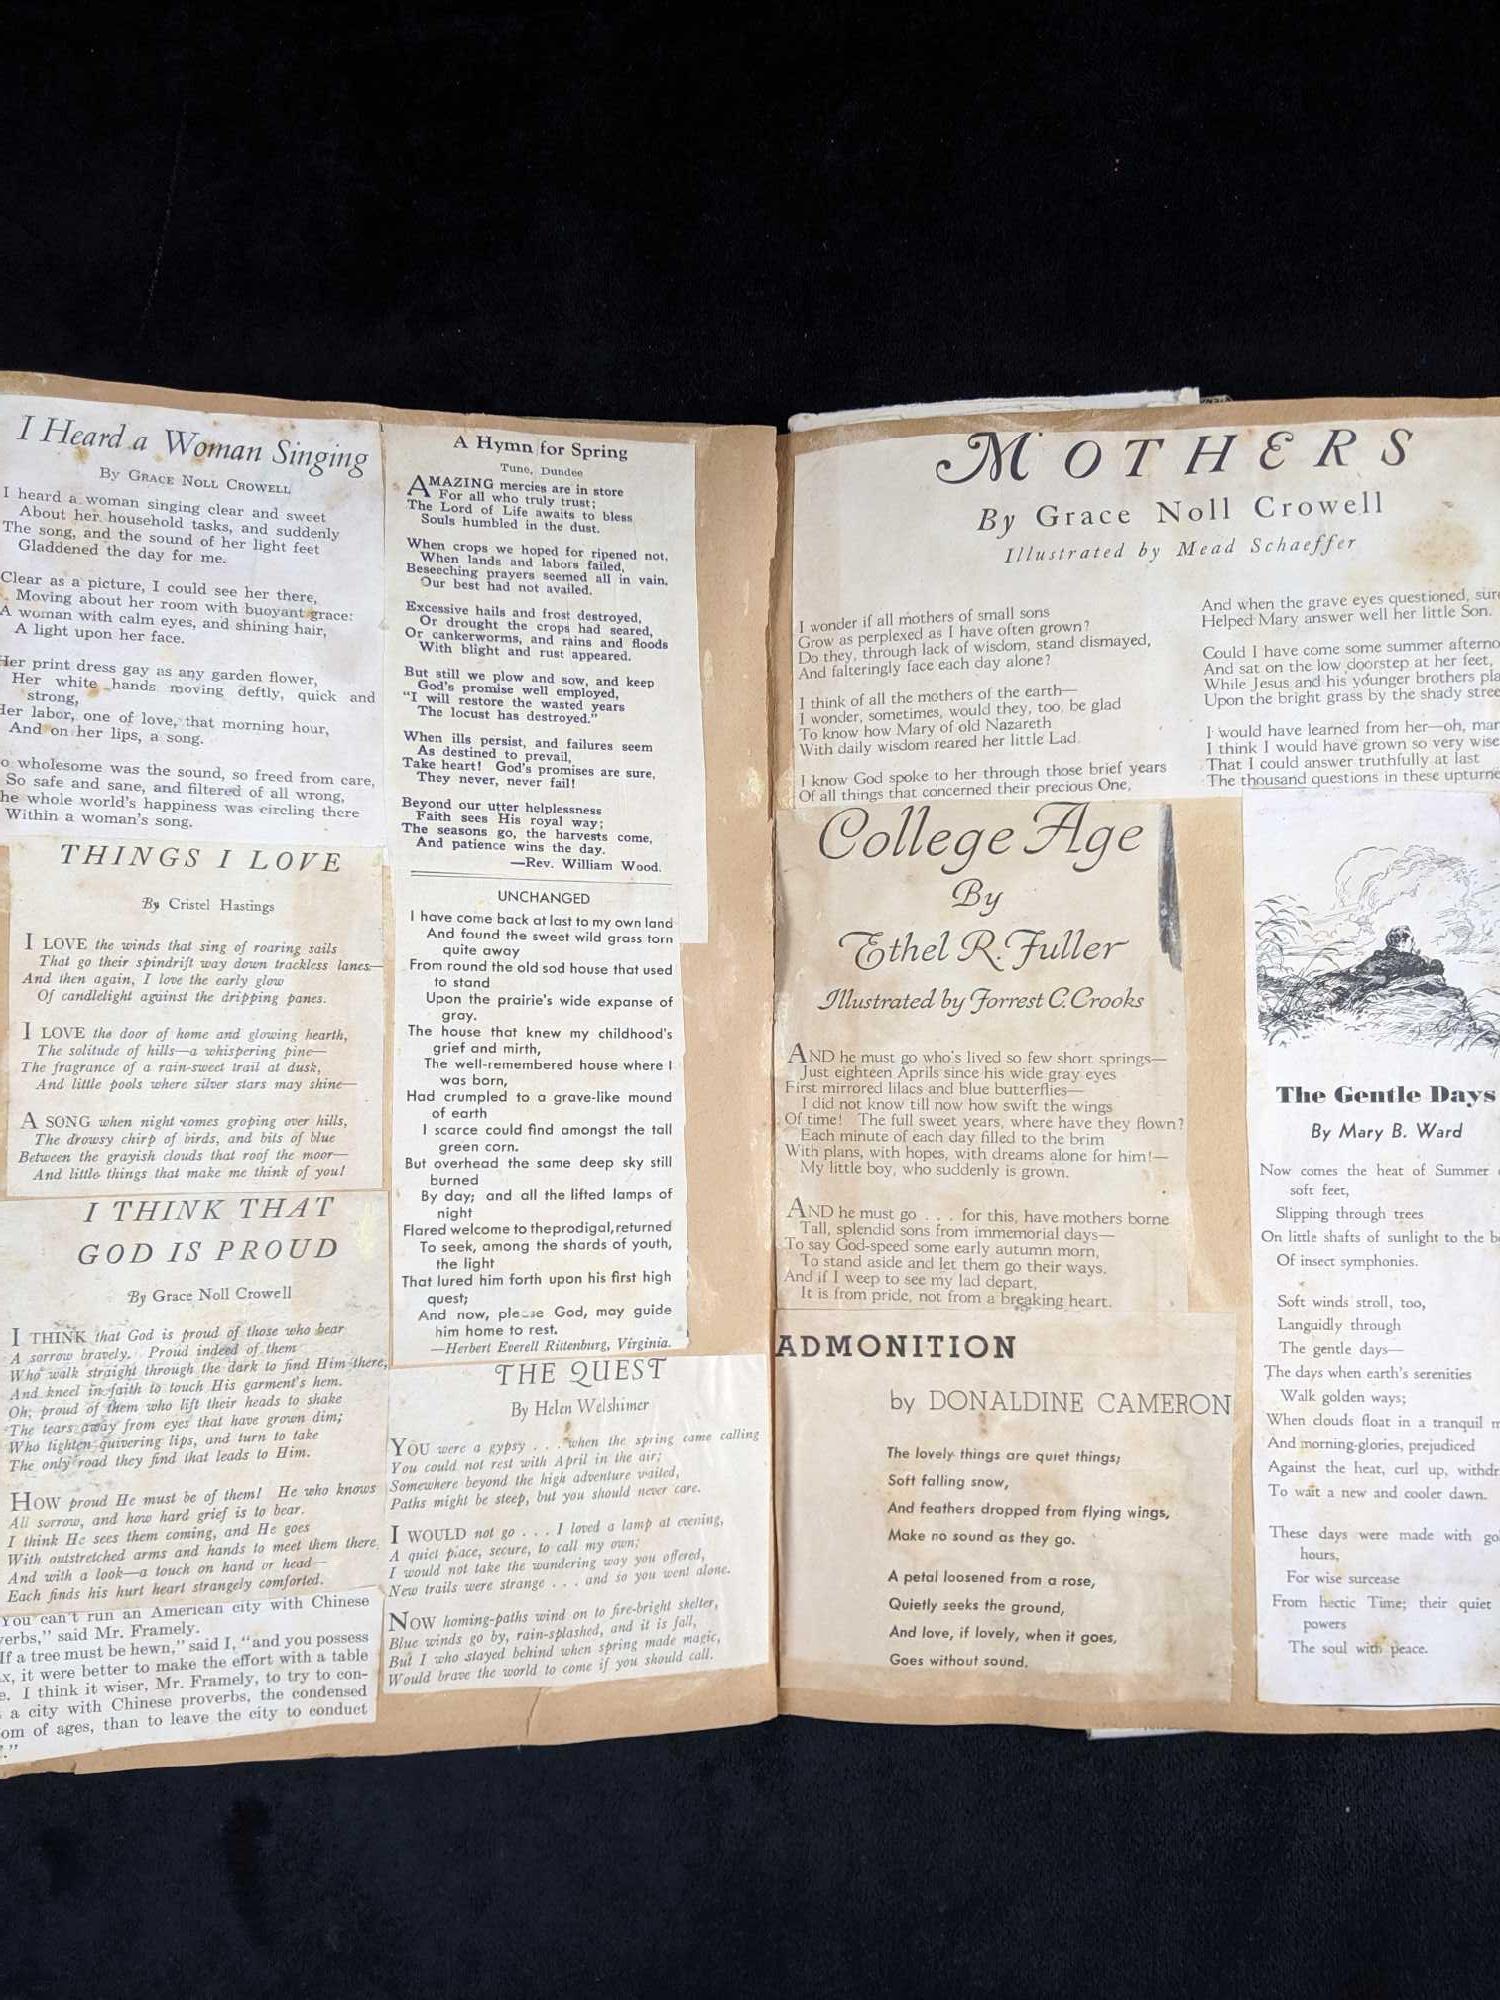 I Heard a Woman Singing
By GRACE NOLL CROWELL
I heard a woman singing clear and sweet
About her household tasks, and suddenly
The song, and the sound of her light feet
Gladdened the day for me.
Clear as a picture, I could see her there,
Moving about her room with buoyant grace:
A woman with calm eyes, and shining hair,
A light upon her face.
Her print dress gay as any garden flower,
Her white hands moving deftly, quick and
strong,
Her labor, one of love, that morning hour,
And on her lips, a song.
o wholesome was the sound, so freed from care,
So safe and sane, and filtered of all wrong,
he whole world's happiness was circling there
Within a woman's song.
THINGS I LOVE
By Cristel Hastings
I LOVE the winds that sing of roaring sails
That go their spindrift way down trackless lanes—
And then again, I love the early glow
Of candlelight against the dripping panes.
I LOVE the door of home and glowing hearth,
The solitude of hills—a whispering pine—
The fragrance of a rain-sweet trail at dusk,
And little pools where silver stars may shine—
A SONG when night comes groping over hills,
The drowsy chirp of birds, and bits of blue
Between the grayish clouds that roof the moor—
And little things that make me think of you!
I THINK THAT
GOD IS PROUD
By Grace Noll Crowell
I THINK that God is proud of those who bear
A sorrow bravely. Proud indeed of them
Who walk straight through the dark to find Him there,
And kneel in faith to touch His garment's hem.
Oh, proud of them who lift their heads to shake
The tears away from eyes that have grown dim;
Who tighten quivering lips, and turn to take
The only road they find that leads to Him.
HOW proud He must be of them! He who knows
All sorrow, and how hard grief is to bear.
I think He sees them coming, and He goes
With outstretched arms and hands to meet them there,
And with a look—a touch on hand or head—
Each finds his hurt heart strangely comforted.
You can't run an American city with Chinese
verbs," said Mr. Framely.
If a tree must be hewn," said I, "and you possess
x, it were better to make the effort with a table
e. I think it wiser, Mr. Framely, to try to con-
a city with Chinese proverbs, the condensed
om of ages, than to leave the city to conduct
."
A Hymn for Spring
Tune, Dundee
AMAZING mercies are in store
For all who truly trust;
The Lord of Life awaits to bless
Souls humbled in the dust.
When crops we hoped for ripened not,
When lands and labors failed,
Beseeching prayers seemed all in vain,
Our best had not availed.
Excessive hails and frost destroyed,
Or drought the crops had seared,
Or cankerworms, and rains and floods
With blight and rust appeared.
But still we plow and sow, and keep
God's promise well employed,
"I will restore the wasted years
The locust has destroyed."
When ills persist, and failures seem
As destined to prevail,
Take heart! God's promises are sure,
They never, never fail!
Beyond our utter helplessness
Faith sees His royal way;
The seasons go, the harvests come,
And patience wins the day.
—Rev. William Wood.
UNCHANGED
I have come back at last to my own land
And found the sweet wild grass torn
quite away
From round the old sod house that used
to stand
Upon the prairie's wide expanse of
gray.
The house that knew my childhood's
grief and mirth,
The well-remembered house where I
was born,
Had crumpled to a grave-like mound
of earth
I scarce could find amongst the tall
green corn.
But overhead the same deep sky still
burned
By day; and all the lifted lamps of
night
Flared welcome to the prodigal, returned
To seek, among the shards of youth,
the light
That lured him forth upon his first high
quest;
And now, please God, may guide
him home to rest.
—Herbert Everell Rittenburg, Virginia.
THE QUEST
By Helen Welshimer
YOU were a gypsy . . . when the spring came calling
You could not rest with April in the air;
Somewhere beyond the high adventure waited,
Paths might be steep, but you should never care.
I WOULD not go . . . I loved a lamp at evening,
A quiet place, secure, to call my own;
I would not take the wandering way you offered,
New trails were strange . . . and so you went alone.
NOW homing-paths wind on to fire-bright shelter,
Blue winds go by, rain-splashed, and it is fall,
But I who stayed behind when spring made magic,
Would brave the world to come if you should call.
MOTHERS
By Grace Noll Crowell
Illustrated by Mead Schaeffer
I wonder if all mothers of small sons
Grow as perplexed as I have often grown?
Do they, through lack of wisdom, stand dismayed,
And falteringly face each day alone?
I think of all the mothers of the earth—
I wonder, sometimes, would they, too, be glad
To know how Mary of old Nazareth
With daily wisdom reared her little Lad.
I know God spoke to her through those brief years
Of all things that concerned their precious One,
And when the grave eyes questioned, sure
Helped Mary answer well her little Son.
Could I have come some summer afterno
And sat on the low doorstep at her feet,
While Jesus and his younger brothers pla
Upon the bright grass by the shady stree
I would have learned from her—oh, man
I think I would have grown so very wise
That I could answer truthfully at last
The thousand questions in these upturne
College Age
By
Ethel R. Fuller
Illustrated by Forrest C. Crooks
AND he must go who's lived so few short springs—
Just eighteen Aprils since his wide gray eyes
First mirrored lilacs and blue butterflies—
I did not know till now how swift the wings
Of time! The full sweet years, where have they flown?
Each minute of each day filled to the brim
With plans, with hopes, with dreams alone for him!—
My little boy, who suddenly is grown.
AND he must go . . . for this, have mothers borne
Tall, splendid sons from immemorial days—
To say God-speed some early autumn morn,
To stand aside and let them go their ways.
And if I weep to see my lad depart,
It is from pride, not from a breaking heart.
ADMONITION
by DONALDINE CAMERON
The lovely things are quiet things;
Soft falling snow,
And feathers dropped from flying wings,
Make no sound as they go.
A petal loosened from a rose,
Quietly seeks the ground,
And love, if lovely, when it goes,
Goes without sound.
The Gentle Days
By Mary B. Ward
Now comes the heat of Summer
soft feet,
Slipping through trees
On little shafts of sunlight to the b
Of insect symphonies.
Soft winds stroll, too,
Languidly through
The gentle days—
The days when earth's serenities
Walk golden ways;
When clouds float in a tranquil m
And morning-glories, prejudiced
Against the heat, curl up, withdr
To wait a new and cooler dawn.
These days were made with go
hours,
For wise surcease
From hectic Time; their quiet
powers
The soul with peace.